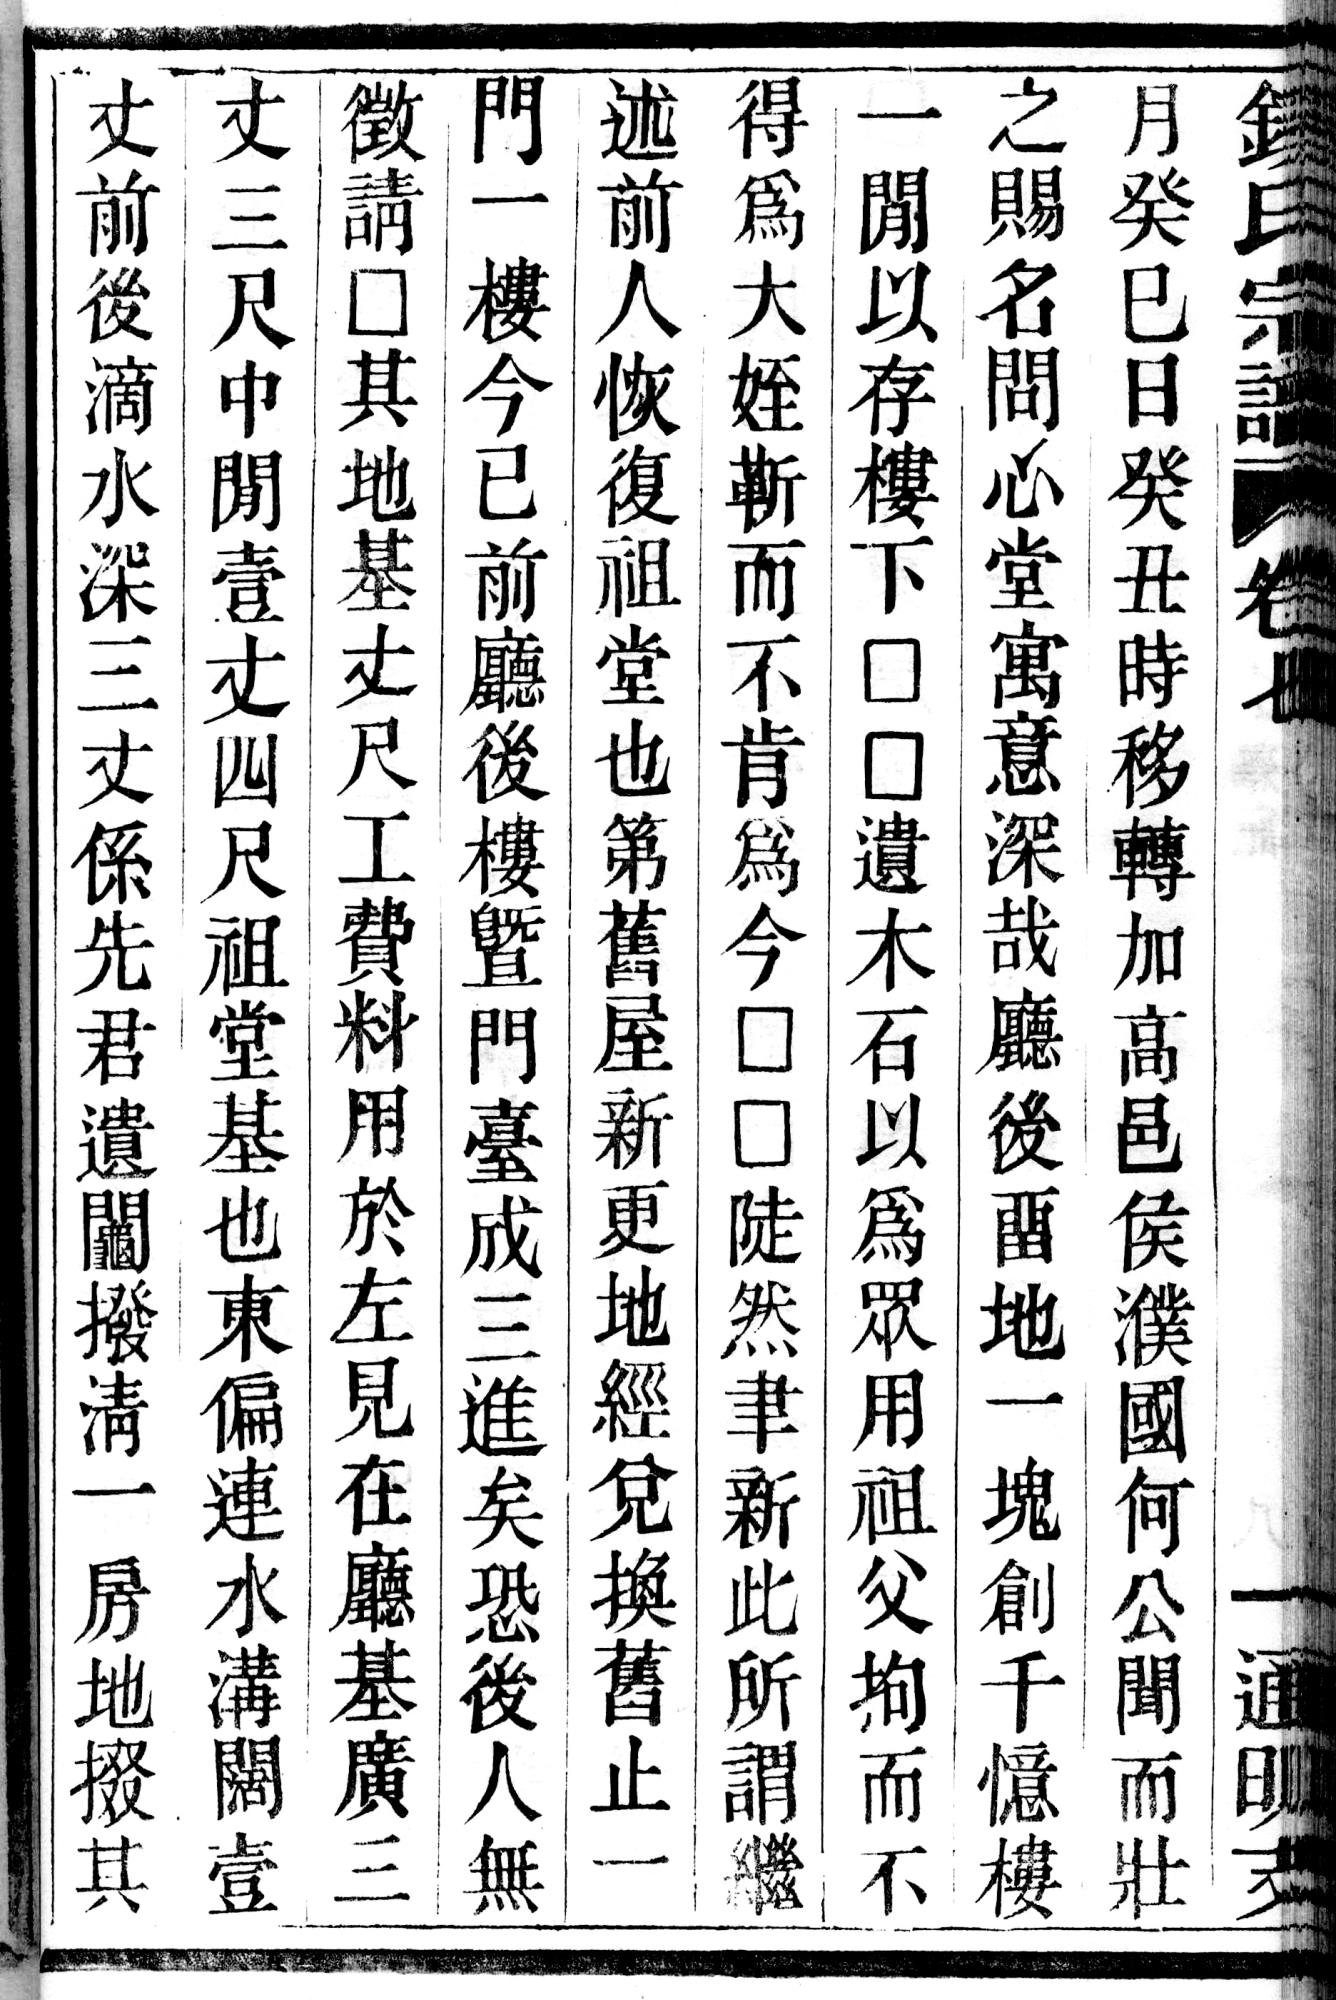 氏宗譜 卷七 一 通明
月癸巳日癸丑時移轉加高邑侯濮國何公聞而壯
之賜名問心堂寓意深哉廳後畱地一塊創千憶樓
一閒以存樓下□□遺木石以爲眾用祖父拘而不
得爲大姪靳而不肯爲今□□陡然聿新此所謂繼
述前人恢復祖堂也第舊屋新更地經兌換舊止一
門一樓今已前廳後樓曁門臺成三進矣恐後人無
徵請□其地基丈尺工費料用於左見在廳基廣三
丈三尺中閒壹丈四尺祖堂基也東偏連水溝闊壹
丈前後滴水深三丈係先君遺鬮撥淸一房地掇其